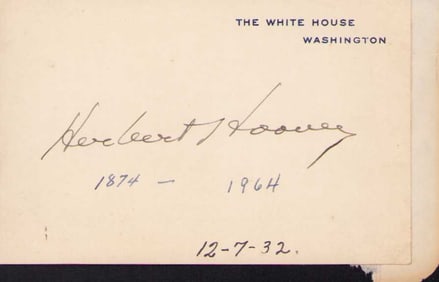 THE WHITE HOUSE
WASHINGTON
Herbert Hoover
1874 – 1964
12-7-32.